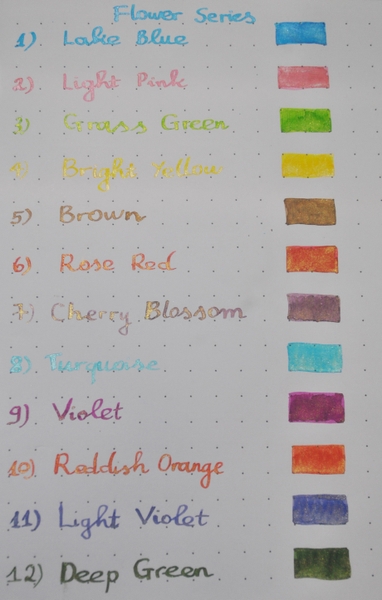 Flower Series
1) Lake Blue
2) Light Pink
3) Grass Green
4) Bright Yellow
5) Brown
6) Rose Red
7) Cherry Blossom
8) Turquoise
9) Violet
10) Reddish Orange
11) Light Violet
12) Deep Green